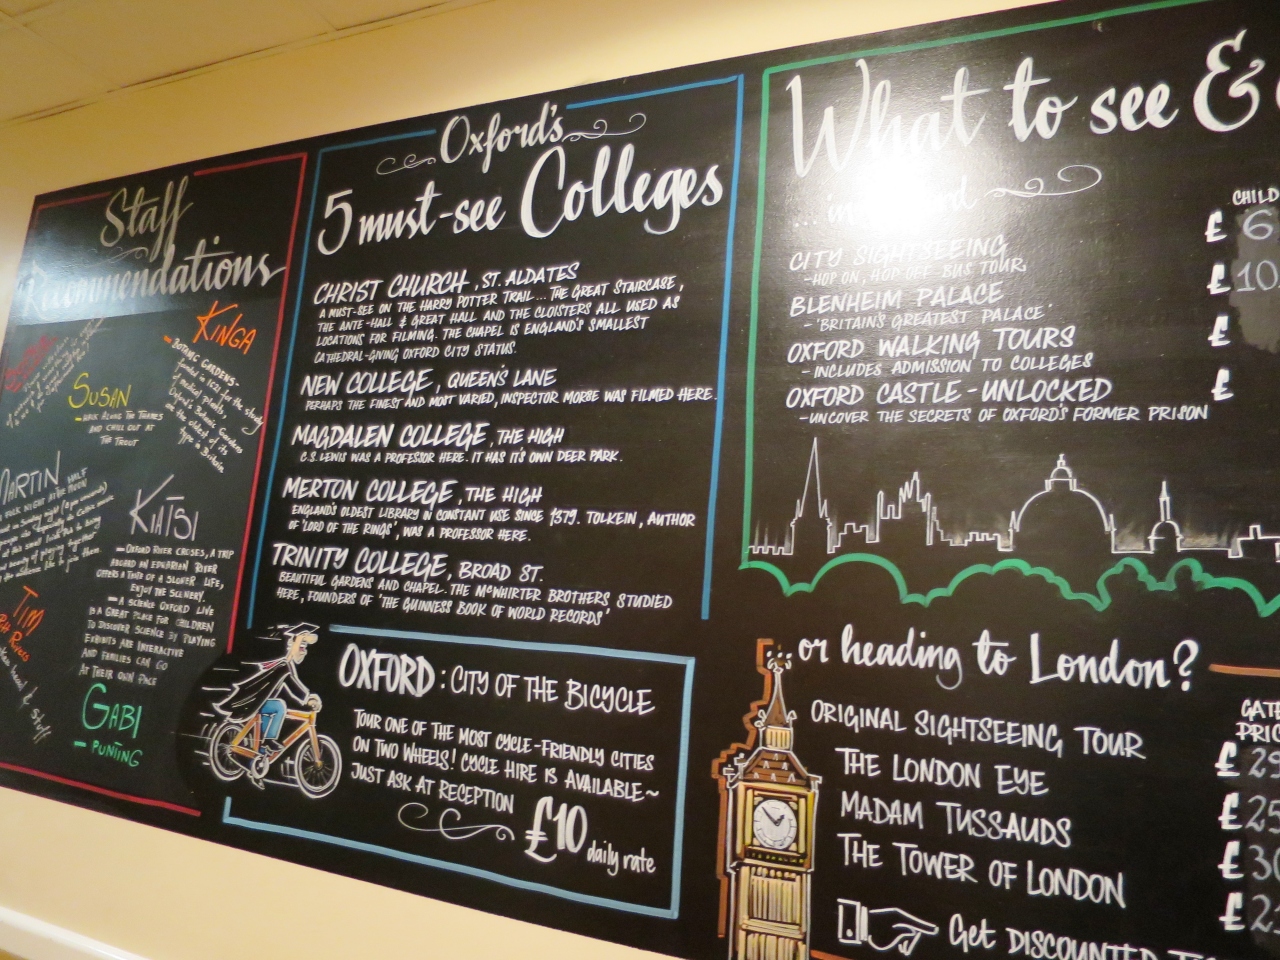 Staff
Recommendations
KINGA
BOTANIC GARDENS-
founded in 1621 for the study
of medicinal plants,
Oxford's Botanic Gardens
are the oldest of its
type in Britain
SUSAN
-WALK ALONG THE THAMES
AND CHILL OUT AT
THE TROUT
MARTIN
FOLK NIGHT AT THE HALF
MOON
KIATSI
-OXFORD RIVER CRUISES, A TRIP
ABOARD AN EDWARIAN RIVER
OFFERS A TASTE OF A SLOWER LIFE,
ENJOY THE SCENERY.
-A SCIENCE OXFORD LIVE
IS A GREAT PLACE FOR CHILDREN
TO DISCOVER SCIENCE BY PLAYING
EXHIBITS ARE INTERACTIVE
AND FAMILIES CAN GO
AT THEIR OWN PACE
TIM
Pitt Rivers
GABI
- PUNTING
Oxford's
5 must-see Colleges
CHRIST CHURCH, ST. ALDATES
A MUST-SEE ON THE HARRY POTTER TRAIL... THE GREAT STAIRCASE,
THE ANTE-HALL & GREAT HALL AND THE CLOISTERS ALL USED AS
LOCATIONS FOR FILMING. THE CHAPEL IS ENGLAND'S SMALLEST
CATHEDRAL-GIVING OXFORD CITY STATUS.
NEW COLLEGE, QUEEN'S LANE
PERHAPS THE FINEST AND MOST VARIED, INSPECTOR MORSE WAS FILMED HERE.
MAGDALEN COLLEGE, THE HIGH
C.S. LEWIS WAS A PROFESSOR HERE. IT HAS IT'S OWN DEER PARK.
MERTON COLLEGE, THE HIGH
ENGLAND'S OLDEST LIBRARY IN CONSTANT USE SINCE 1379. TOLKEIN, AUTHOR
OF 'LORD OF THE RINGS', WAS A PROFESSOR HERE.
TRINITY COLLEGE, BROAD ST.
BEAUTIFUL GARDENS AND CHAPEL. THE McWHIRTER BROTHERS STUDIED
HERE, FOUNDERS OF 'THE GUINNESS BOOK OF WORLD RECORDS'
OXFORD: CITY OF THE BICYCLE
TOUR ONE OF THE MOST CYCLE-FRIENDLY CITIES
ON TWO WHEELS! CYCLE HIRE IS AVAILABLE~
JUST ASK AT RECEPTION
£10 daily rate
What to see &
...in
CHILD
CITY SIGHTSEEING £ 6
-HOP ON, HOP OFF BUS TOUR.
BLENHEIM PALACE £ 10.
- 'BRITAIN'S GREATEST PALACE'
OXFORD WALKING TOURS £
- INCLUDES ADMISSION TO COLLEGES
OXFORD CASTLE - UNLOCKED £
-UNCOVER THE SECRETS OF OXFORD'S FORMER PRISON
or heading to London?
GATE
PRICE
ORIGINAL SIGHTSEEING TOUR £ 29
THE LONDON EYE £ 25
MADAM TUSSAUDS £ 30
THE TOWER OF LONDON £ 2
Get DISCOUNTED